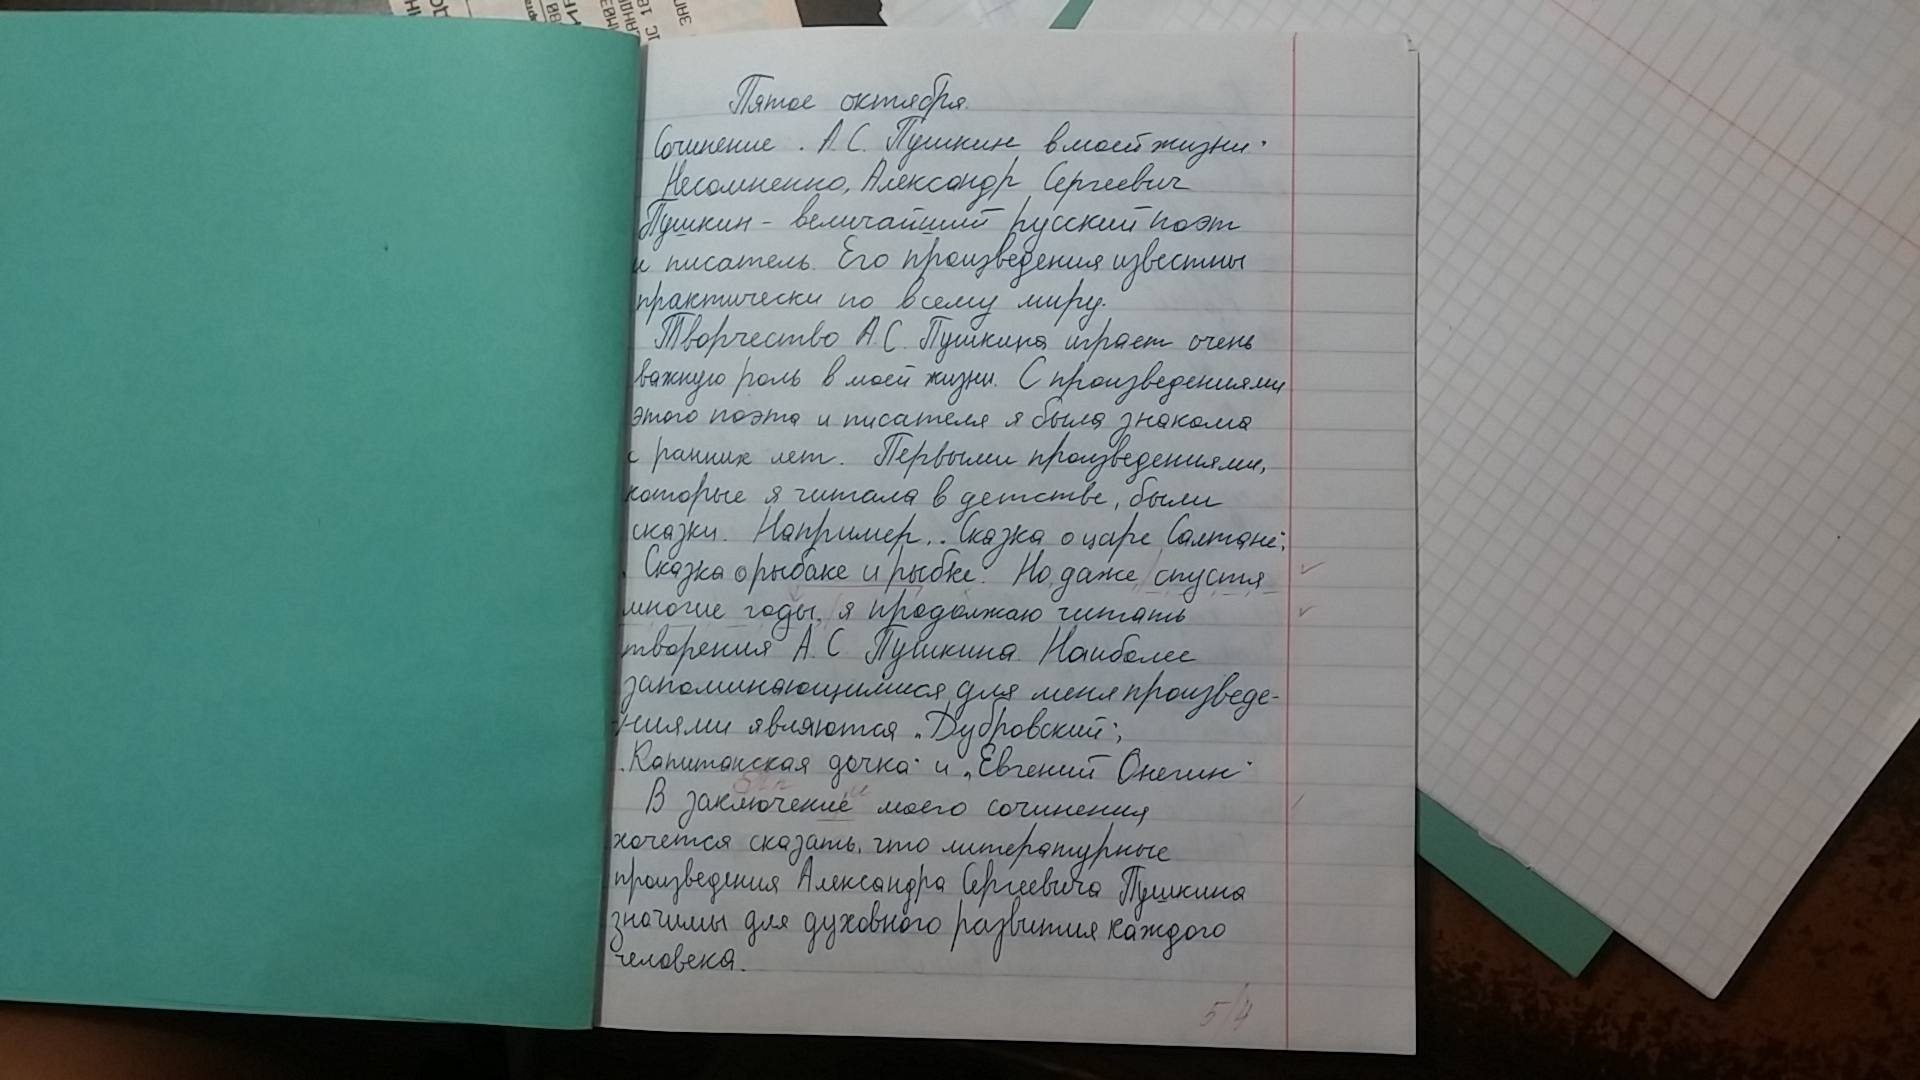 Пятое октября.
Сочинение „А.С. Пушкин в моей жизни“
Несомненно, Александр Сергеевич
Пушкин – величайший русский поэт
и писатель. Его произведения известны
практически по всему миру.
Творчество А.С. Пушкина играет очень
важную роль в моей жизни. С произведениями
этого поэта и писателя я была знакома
с ранних лет. Первыми произведениями,
которые я читала в детстве, были
сказки. Например, „Сказка о царе Салтане“,
„Сказка о рыбаке и рыбке“. Но, даже спустя
многие годы, я продолжаю читать
творения А.С. Пушкина. Наиболее
запоминающимися для меня произведе-
ниями являются „Дубровский“,
„Капитанская дочка“ и „Евгений Онегин“
В заключение моего сочинения
хочется сказать, что литературные
произведения Александра Сергеевича Пушкина
значимы для духовного развития каждого
человека.
5/4